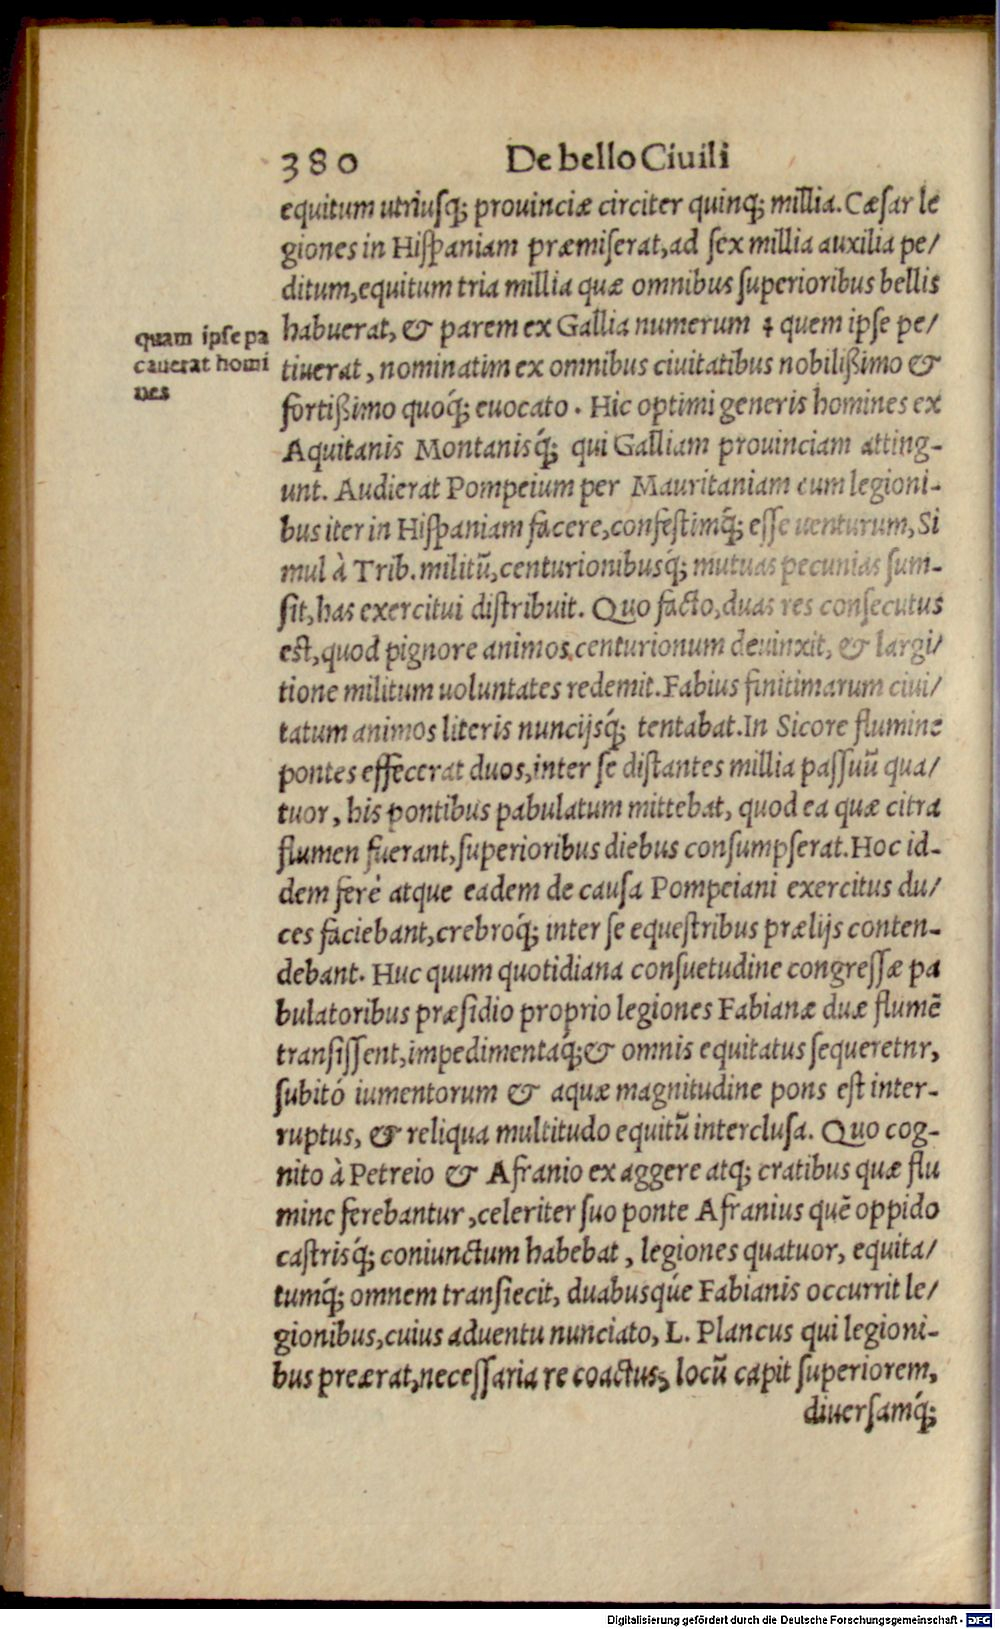 380 De bello Ciuili
equitum utriusq; prouinciæ circiter quinq; millia. Cæsar le
giones in Hispaniam præmiserat, ad sex millia auxilia pe/
ditum, equitum tria millia quæ omnibus superioribus bellis
habuerat, & parem ex Gallia numerum ⁊ quem ipse pe/
tiuerat, nominatim ex omnibus ciuitatibus nobilißimo &
fortißimo quoq́; euocato. Hic optimi generis homines ex
Aquitanis Montanisq́; qui Galliam prouinciam atting-
unt. Audierat Pompeium per Mauritaniam cum legioni-
bus iter in Hispaniam facere, confestimq́; esse uenturum, Si
mul à Trib. militũ, centurionibusq́; mutuas pecunias sum-
sit, has exercitui distribuit. Quo facto, duas res consecutus
est, quod pignore animos centurionum deuinxit, & largi/
tione militum uoluntates redemit. Fabius finitimarum ciui/
tatum animos literis nuncijsq́; tentabat. In Sicore flumine
pontes effecerat duos, inter se distantes millia passuũ qua/
tuor, his pontibus pabulatum mittebat, quod ea quæ citra
flumen fuerant, superioribus diebus consumpserat. Hoc id-
dem ferè atque eadem de causa Pompeiani exercitus du/
ces faciebant, crebroq́; inter se equestribus prælijs conten-
debant. Huc quum quotidiana consuetudine congressæ pa
bulatoribus præsidio proprio legiones Fabianæ duæ flumẽ
transissent, impedimentaq́; & omnis equitatus sequeretnr,
subitó iumentorum & aquæ magnitudine pons est inter-
ruptus, & reliqua multitudo equitũ interclusa. Quo cog-
nito à Petreio & Afranio ex aggere atq; cratibus quæ flu
mine ferebantur, celeriter suo ponte Afranius quẽ oppido
castrisq́; coniunctum habebat, legiones quatuor, equita/
tumq́; omnem transiecit, duabusqúe Fabianis occurrit le/
gionibus, cuius aduentu nunciato, L. Plancus qui legioni-
bus preærat, necessaria re coactus, locũ capit superiorem,
diuersamq́;
quam ipse pa
cauerat homi
nes
Digitalisierung gefördert durch die Deutsche Forschungsgemeinschaft - DFG